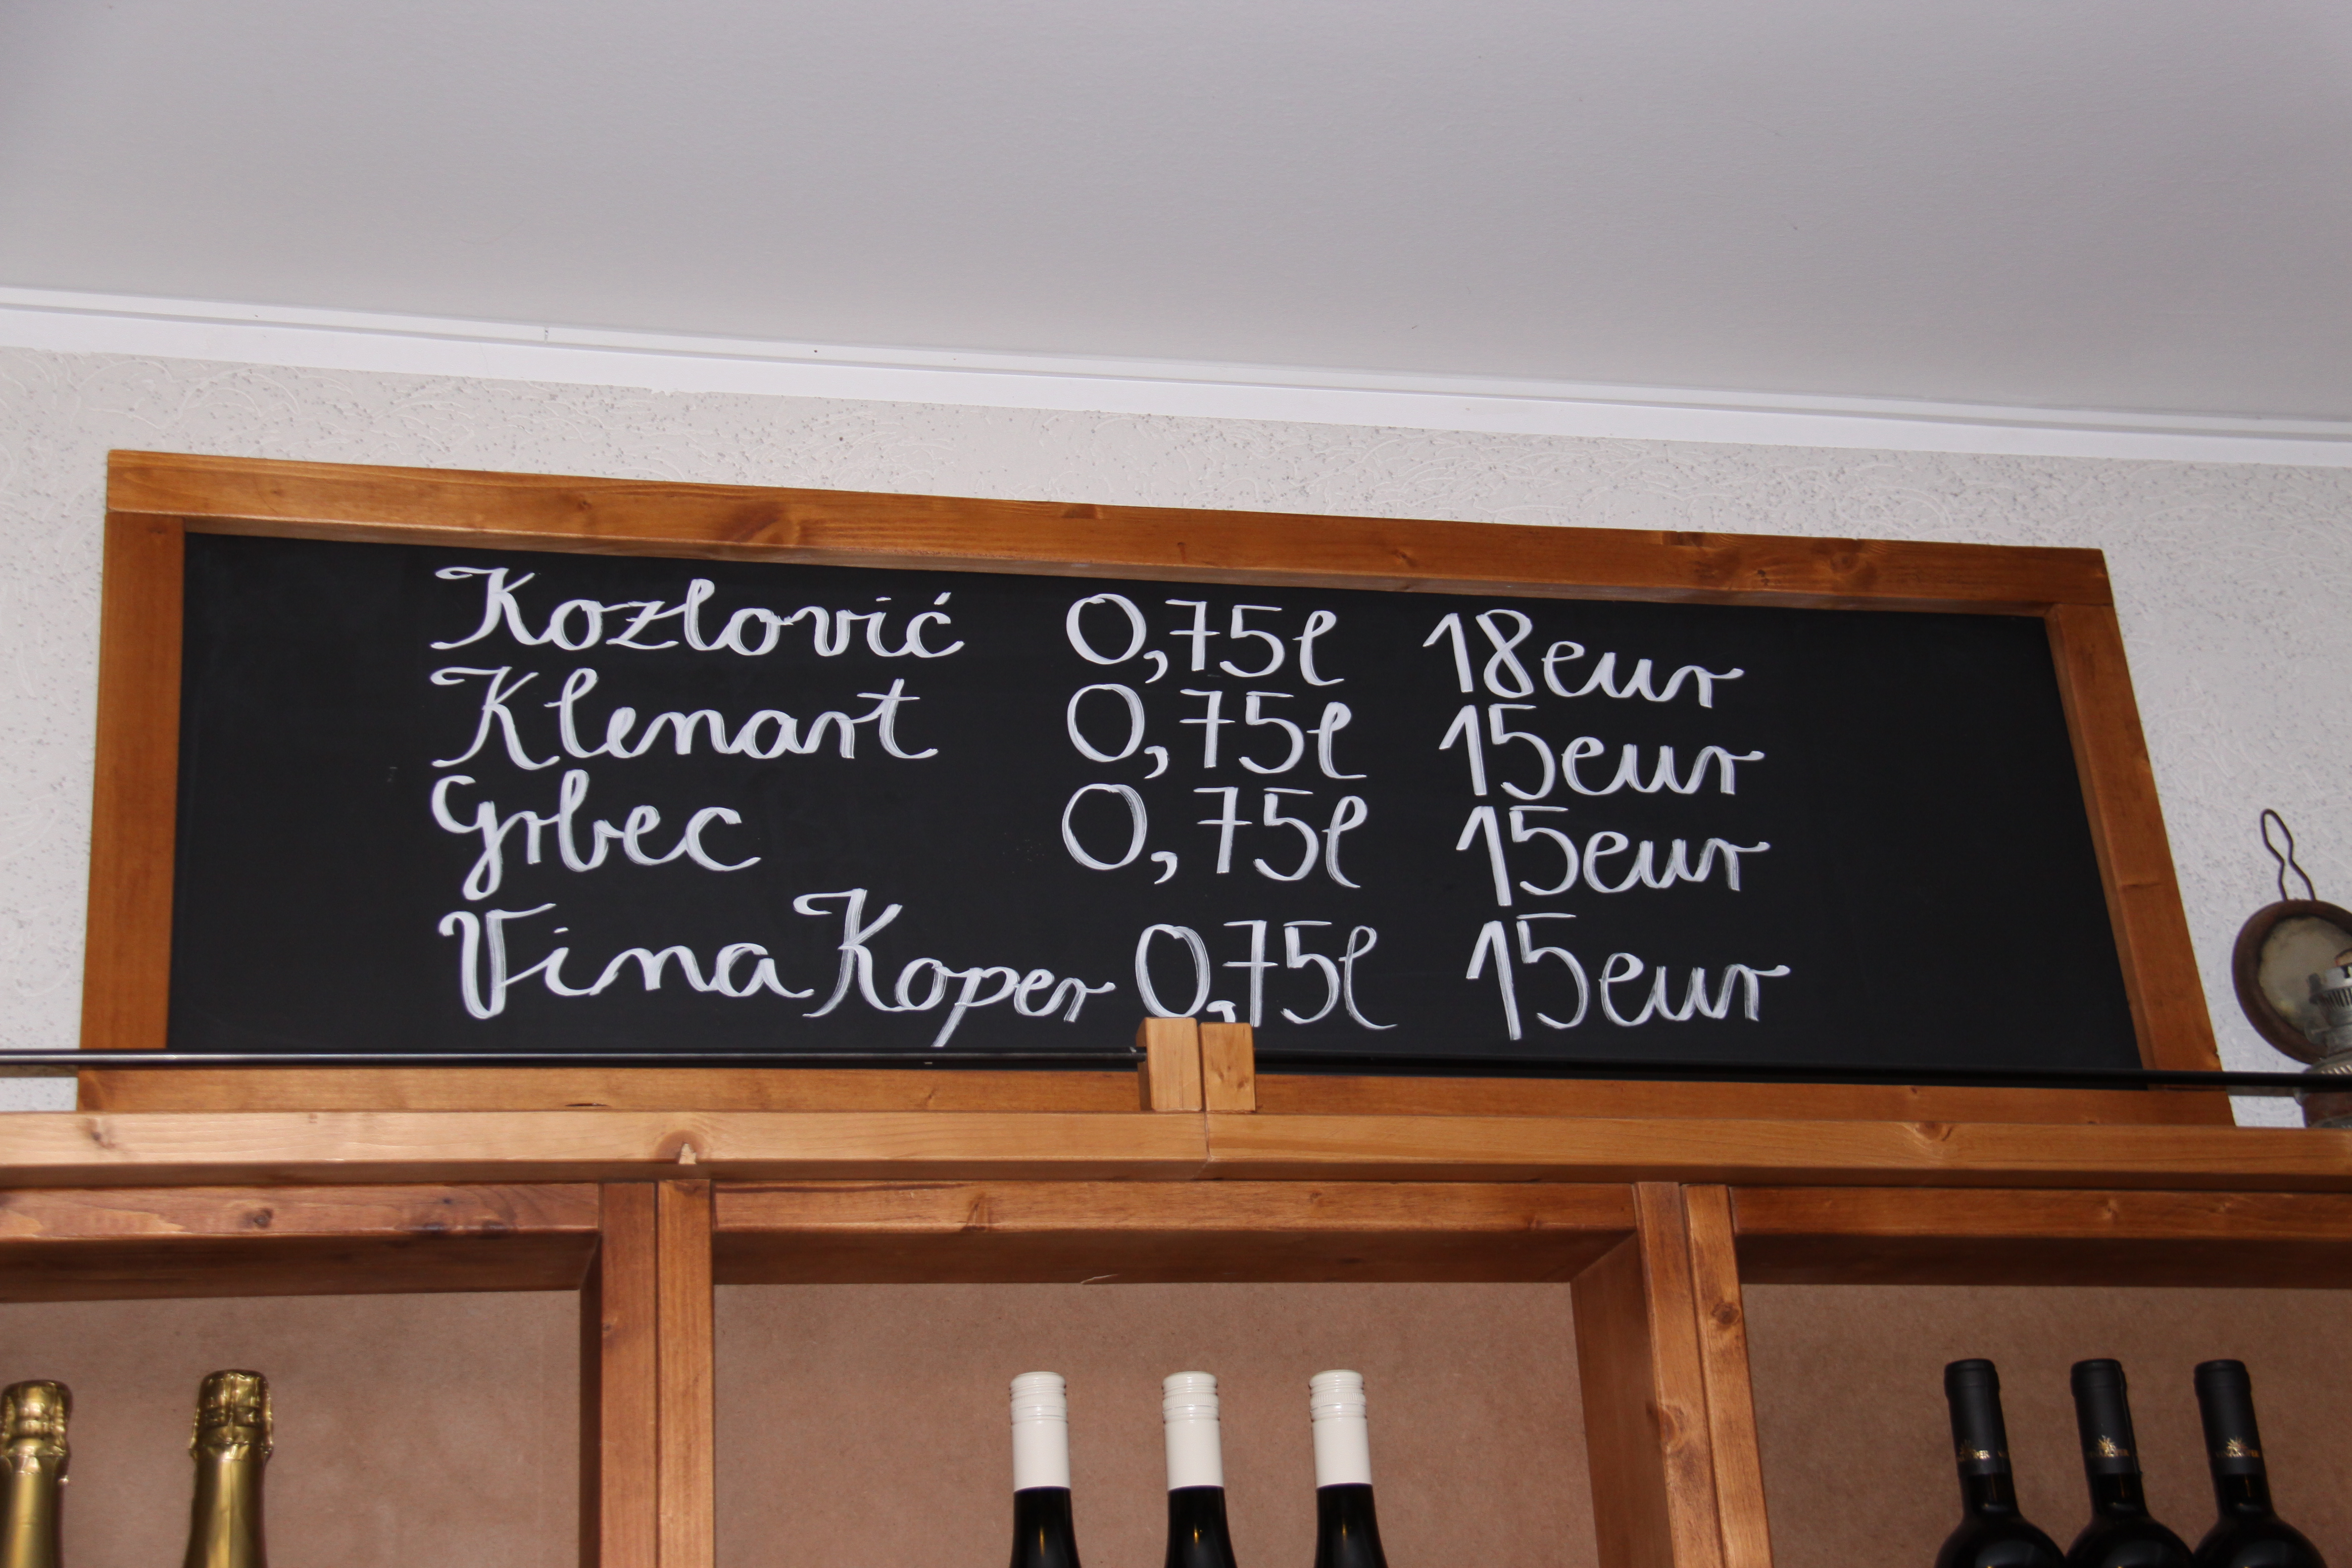 Kozlović 0,75l 18eur
Klenart 0,75l 15eur
Grbec 0,75l 15eur
Vina Koper 0,75l 15eur